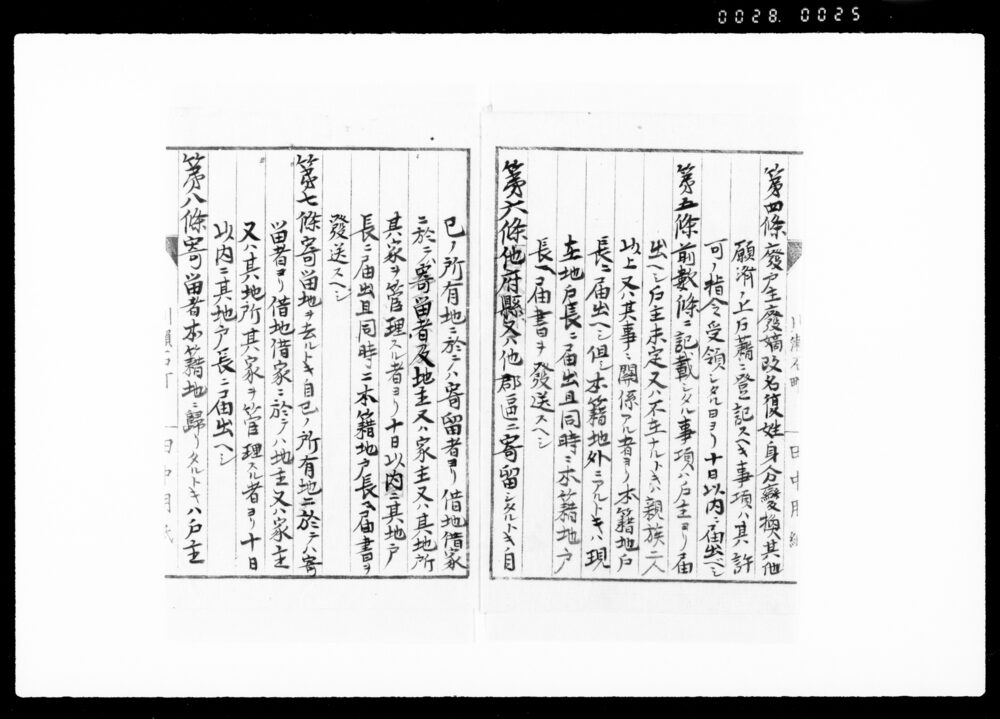 0028. 0025
第四條廢戸主廢嫡改名復姓身分變換其他
願濟ノ上戸籍ニ登記スヘキ事項ハ其許
可ノ指令受領シタル日ヨリ十日以内ニ届出ヘシ
第五條前數條ニ記載シタル事項ハ戸主ヨリ届
出ヘシ戸主未定又ハ不在ナルトキハ親族二人
以上又ハ其事ニ關係アル者ヨリ本籍地戸
長ニ届出ヘシ但シ本籍地外ニアルトキハ現
在地戸長ニ届出且同時ニ本籍地戸
長ヘ届書ヲ發送スヘシ
第六條他府縣又ハ他郡區ニ寄留シタルトキ自
己ノ所有地ニ於テハ寄留者ヨリ借地借家
ニ於テハ寄留者及地主又ハ家主又ハ其地所
其家ヲ管理スル者ヨリ十日以内ニ其地戸
長ニ届出且同時ニ本籍地戸長ヘ届書ヲ
發送スヘシ
第七條寄留地ヲ去ルトキ自己ノ所有地ニ於テハ寄
留者ヨリ借地借家ニ於テハ地主又ハ家主
又ハ其地所其家ヲ管理スル者ヨリ十日
以内ニ其地戸長ニ届出ヘシ
第八條寄留者本籍地ニ歸リタルトキハ戸主